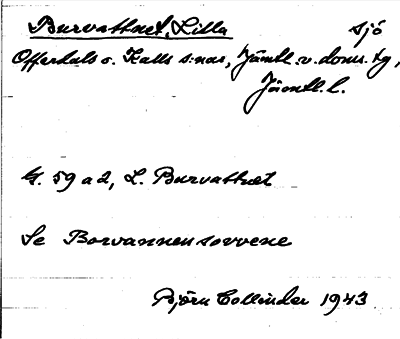 Burvattnet, Lilla sjö
Offerdals o. Kalls s:nar, Jämtl. v. doms. tg,
Jämtl. l.
G. 59 a 2, L. Burvattnet
Se Borvannensovvene
Björn Collinder 1943